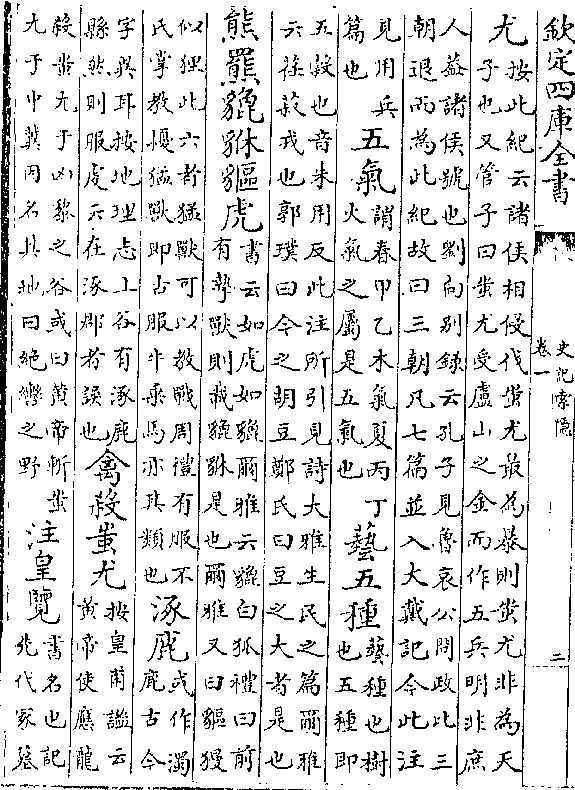 欽定四庫全書
史記索隱
卷一
二
尤
按此紀云諸侯相侵伐蚩尤最為暴則蚩尤非為天
子也又管子曰蚩尤受盧山之金而作五兵明非庶
人葢諸侯號也劉向别錄云孔子見魯哀公問政比三
朝退而為此紀故曰三朝凡七篇並入大戴記今此注
見用兵
篇也
五氣
謂春甲乙木氣夏丙丁
火氣之屬是五氣也
藝五種
藝種也樹
也五種即
五穀也音朱用反此注所引見詩大雅生民之篇爾雅
云荏菽戎也郭璞曰今之胡豆鄭氏曰豆之大者是也
熊羆貔貅貙虎
書云如虎如貔爾雅云貔白狐禮曰前
有摯獸則載貔貅是也爾雅又曰貙獌
似狸此六者猛獸可以教戰周禮有服不
氏掌教擾猛獸即古服牛乘馬亦其類也
涿鹿
或作濁
鹿古今
字異耳按地理志上谷有涿鹿
縣然則服虔云在涿郡者誤也
禽殺蚩尤
按皇甫謐云
黃帝使應龍
殺蚩尤于凶黎之谷或曰黃帝斬蚩
尤于中冀因名其地曰絶轡之野
注皇覽
書名也記
先代冢墓